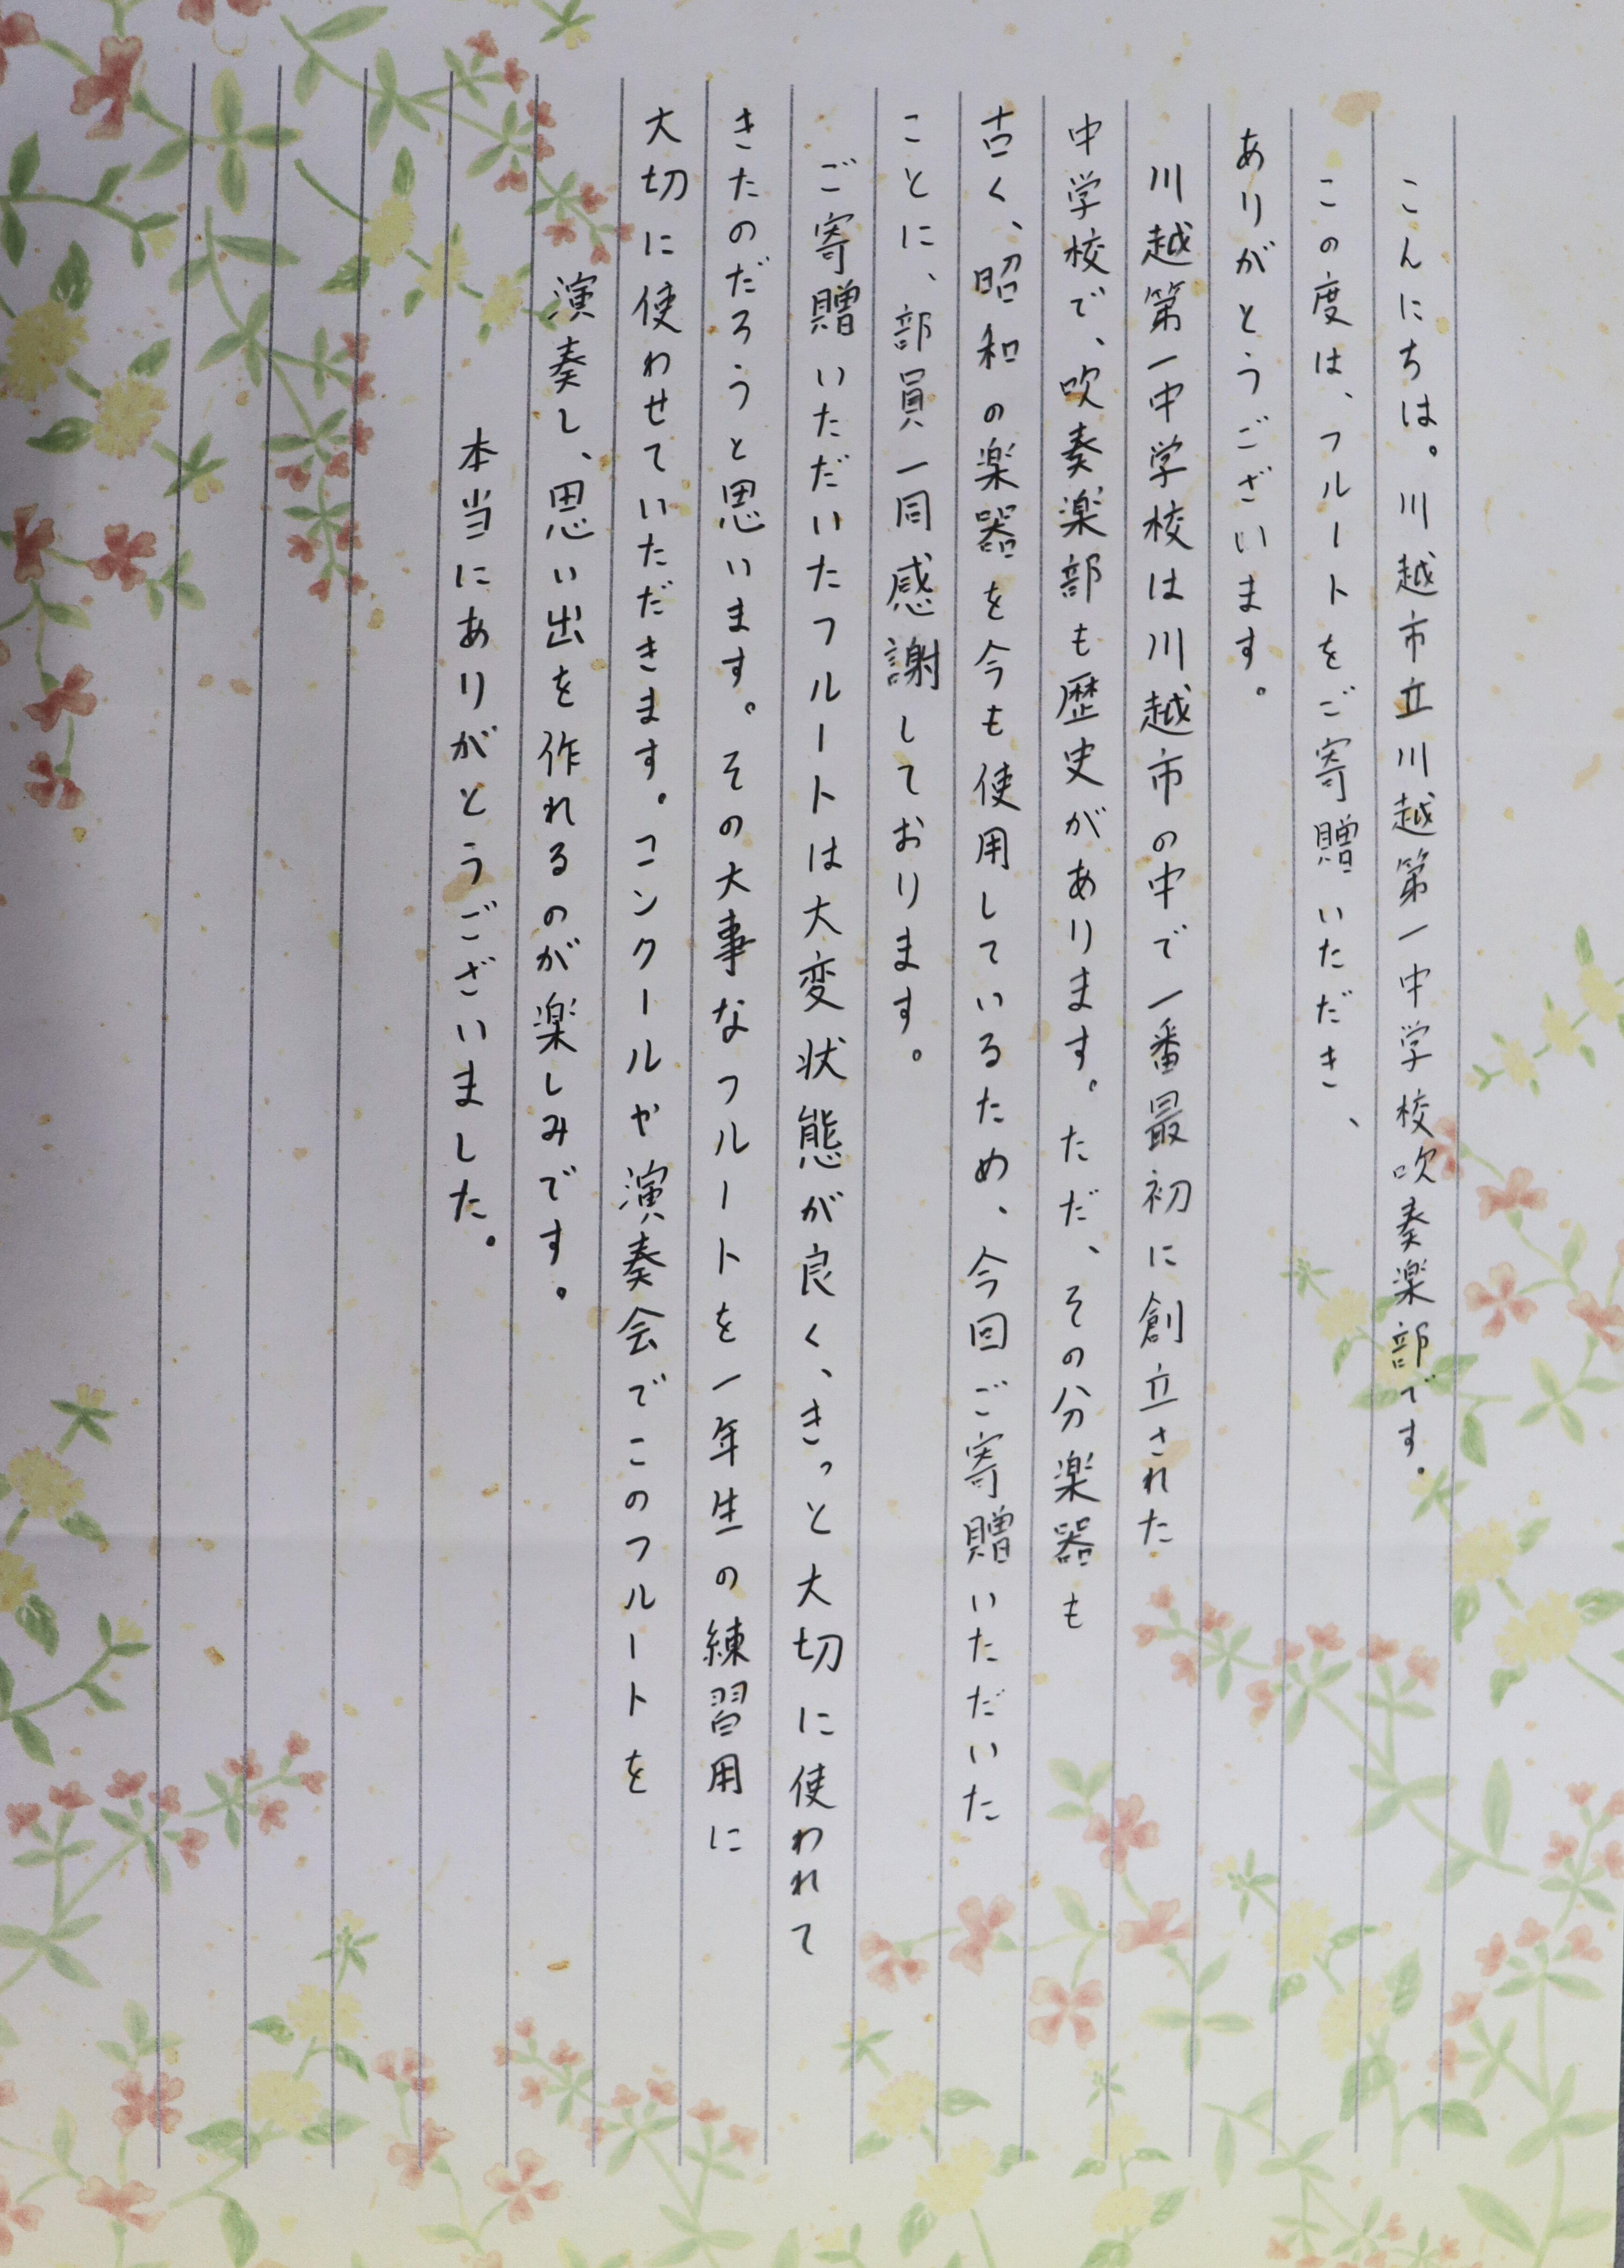 こんにちは。川越市立川越第一中学校吹奏楽部です。
この度は、フルートをご寄贈いただき、
ありがとうございます。
川越第一中学校は川越市の中で一番最初に創立された
中学校で、吹奏楽部も歴史があります。ただ、その分楽器も
古く、昭和の楽器を今も使用しているため、今回ご寄贈いただいた
ことに、部員一同感謝しております。
ご寄贈いただいたフルートは大変状態が良く、きっと大切に使われて
きたのだろうと思います。その大事なフルートを一年生の練習用に
大切に使わせていただきます。コンクールや演奏会でこのフルートを
演奏し、思い出を作れるのが楽しみです。
本当にありがとうございました。